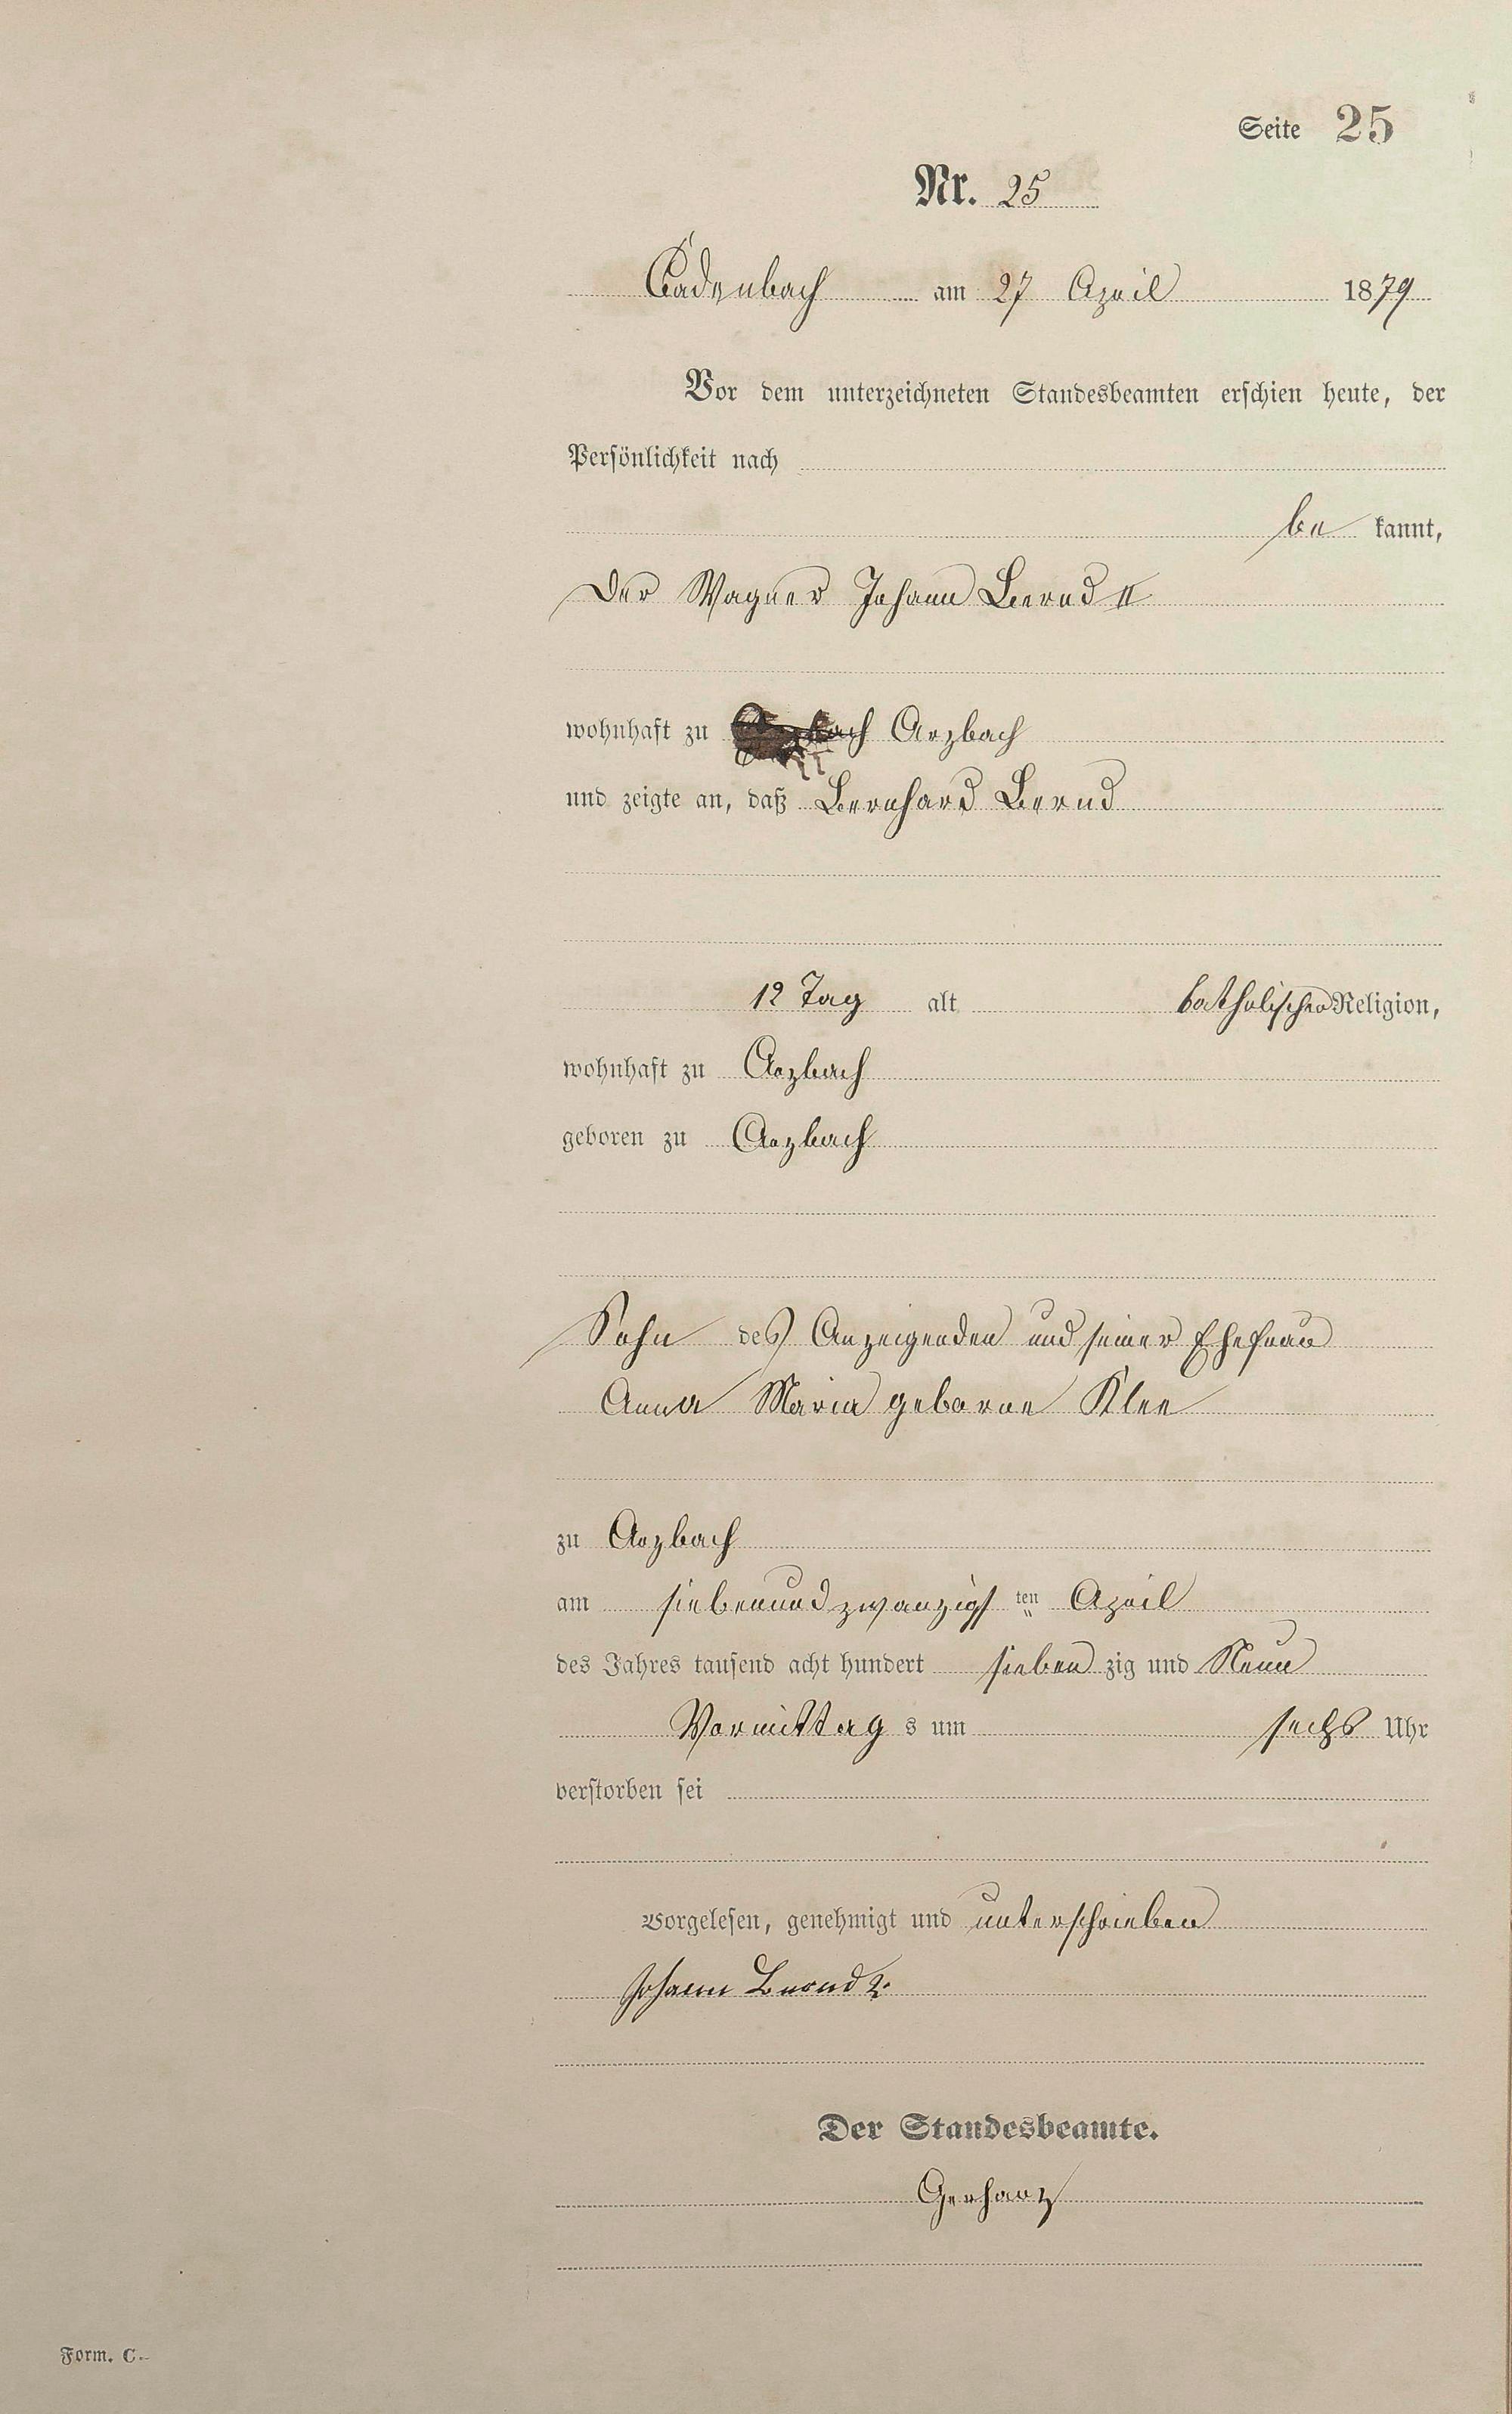 Seite 25
Nr. 25
Cadenbach am 27 April 1879
Vor dem unterzeichneten Standesbeamten erschien heute, der
Persönlichkeit nach
be kannt,
Der Wagner Johann Bernd II
wohnhaft zu Arzbach
und zeigte an, daß Bernhard Bernd
12 Tag alt katholischer Religion,
wohnhaft zu Arzbach
geboren zu Arzbach
Sohn des Anzeigenden und seiner Ehefrau
Anna Maria geborne Klee
zu Arzbach
am siebenundzwanzigs ten April
des Jahres tausend acht hundert sieben zig und Neun
Vormittag s um sechs Uhr
verstorben sei
Vorgelesen, genehmigt und unterschrieben
Johann Bernd 2.
Der Standesbeamte.
Gerharz
Form. C.